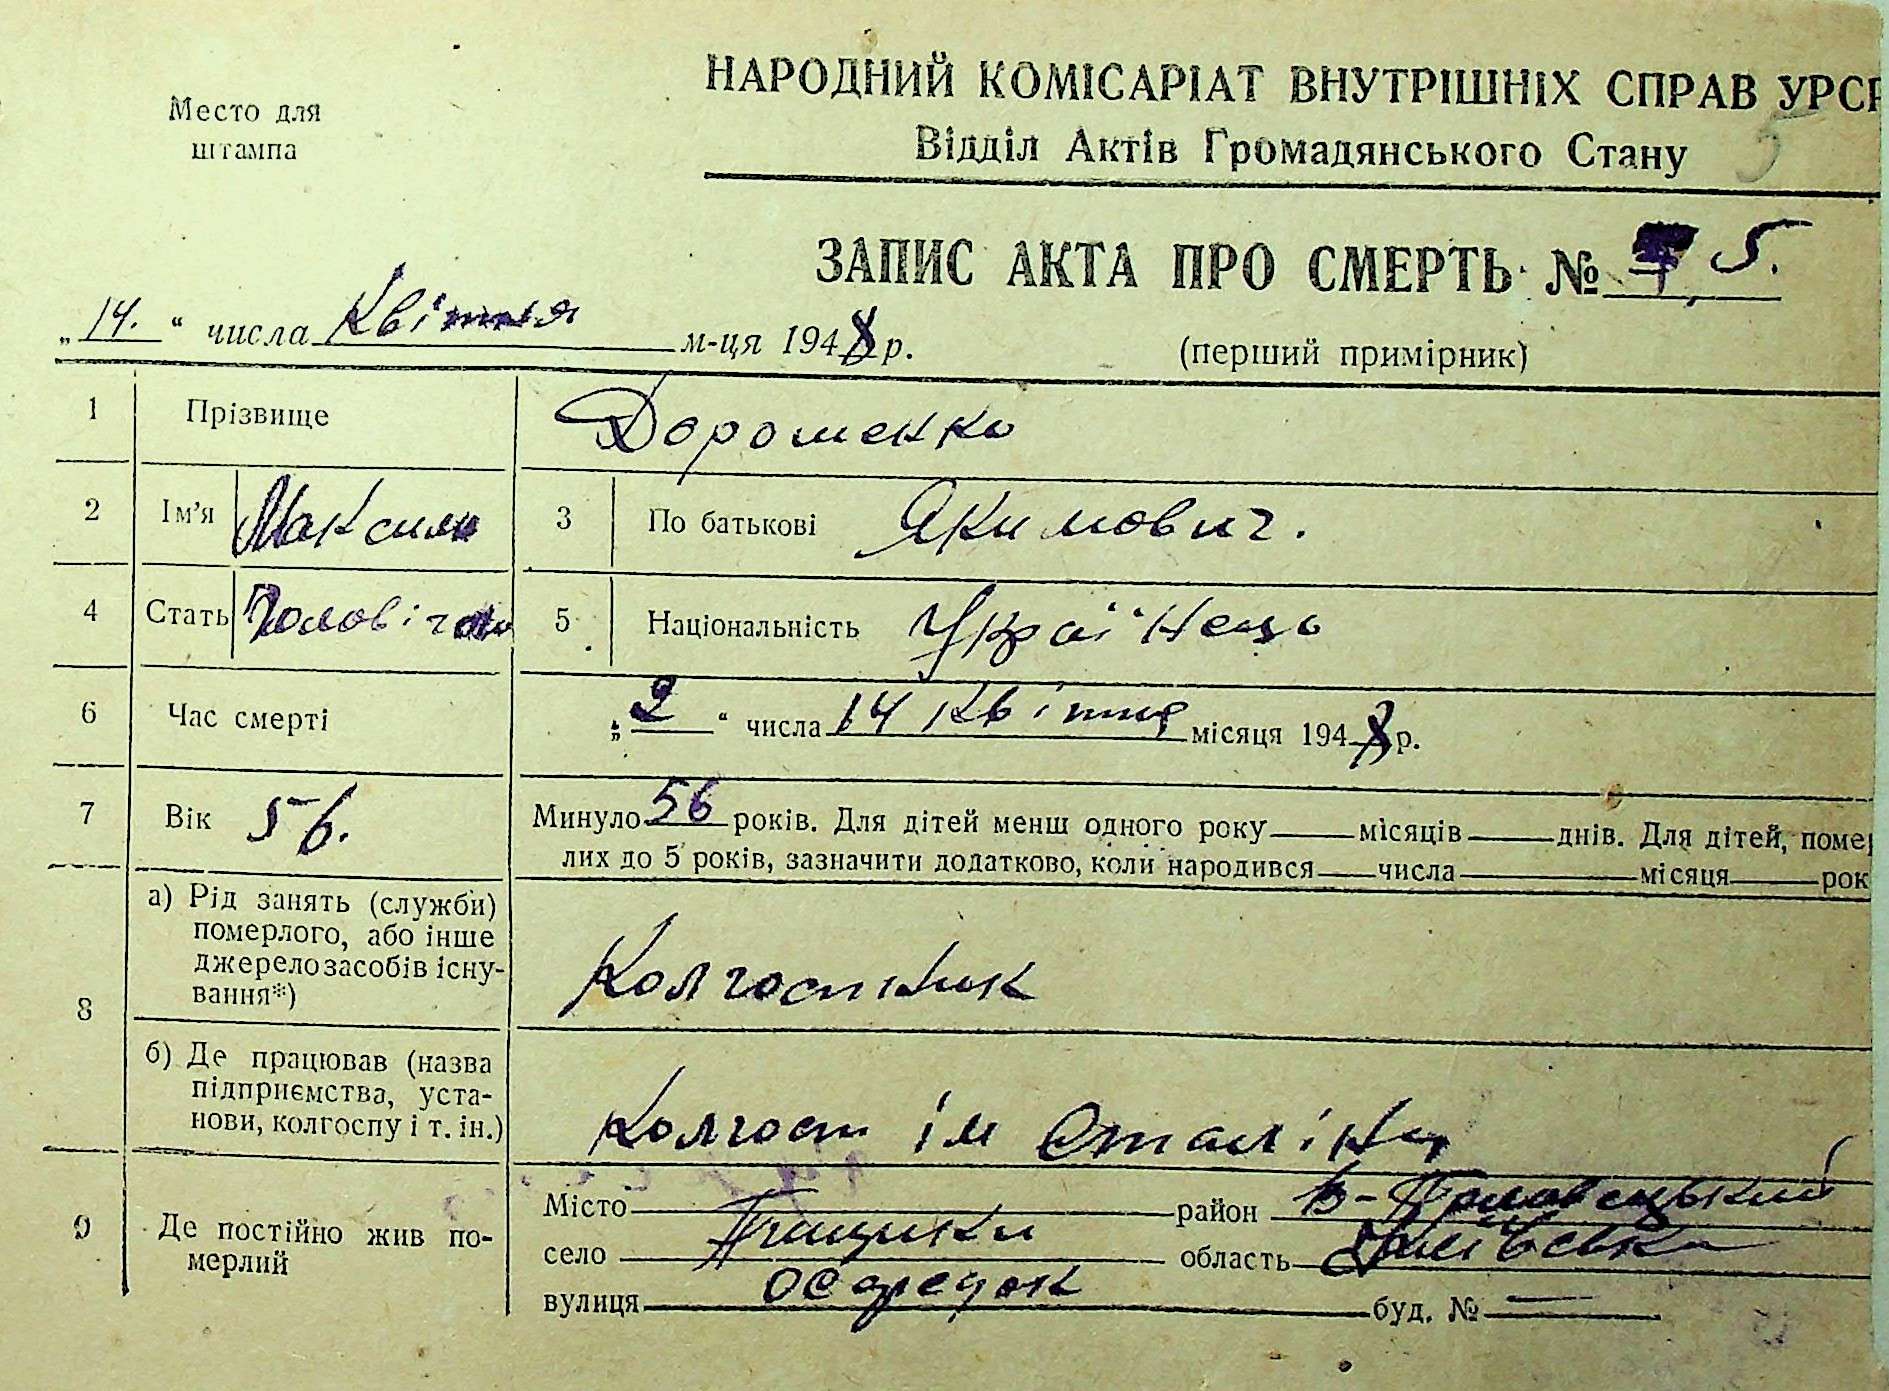 НАРОДНИЙ КОМІСАРІАТ ВНУТРІШНІХ СПРАВ УРСР
Место для
штампа
Відділ Актів Громадянського Стану
5
ЗАПИС АКТА ПРО СМЕРТЬ № 5.
„14.“ числа Квітня м-ця 1948 р.
(перший примірник)
1 Прізвище Дорошенко
2 Ім'я Максим 3 По батькові Якимович.
4 Стать Чоловіча 5 Національність Українець
6 Час смерті „2“ числа 14 Квітня місяця 1948 р.
7 Вік 56. Минуло 56 років. Для дітей менш одного року місяців днів. Для дітей, помер
лих до 5 років, зазначити додатково, коли народився числа місяця рок
8 а) Рід занять (служби)
померлого, або інше
джерело засобів існу-
вання*)
Колгоспник
б) Де працював (назва
підприємства, уста-
нови, колгоспу і т. ін.)
Колгосп ім Сталіна
9 Де постійно жив по-
мерлий
Місто район
село область
вулиця Осередок буд. № —